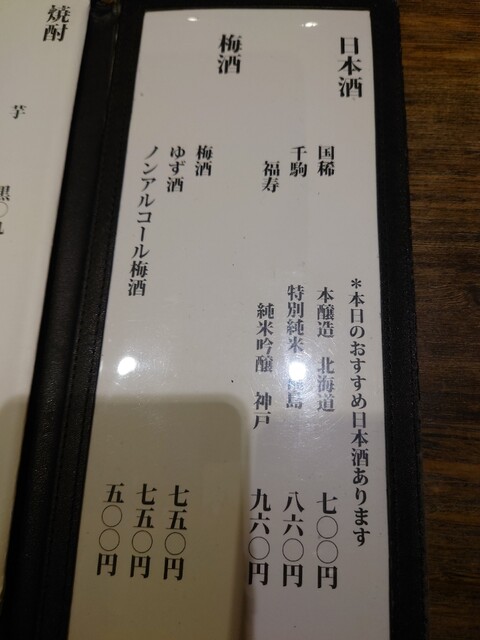 日本酒
＊本日のおすすめ日本酒あります
国稀 本醸造 北海道 七〇〇円
千駒 特別純米 島 八六〇円
福寿 純米吟醸 神戸 九六〇円
梅酒
梅酒 七五〇円
ゆず酒 七五〇円
ノンアルコール梅酒 五〇〇円
焼酎
芋
黒〇